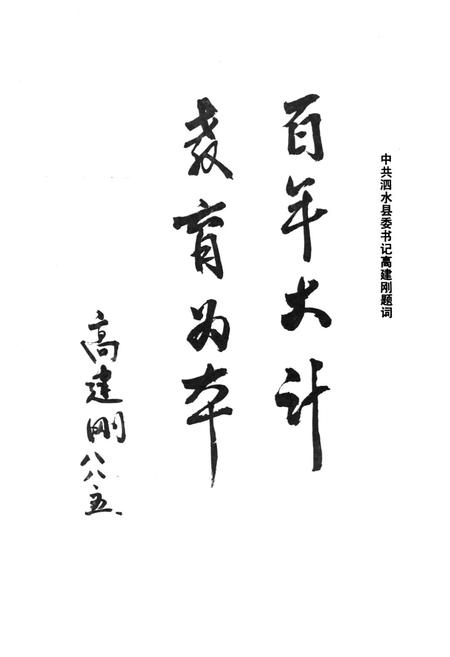 中共泗水县委书记高建刚题词
百年大计
教育为本
高建刚八八·五、